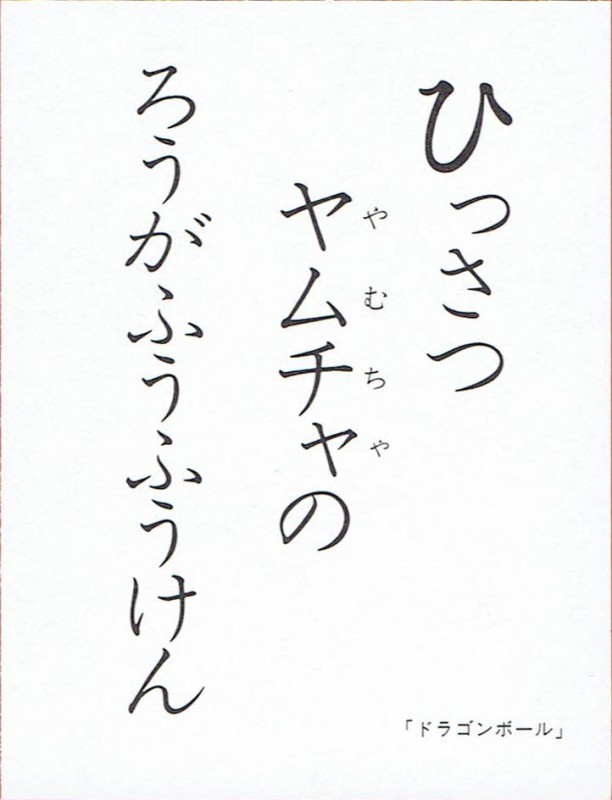 ひっさつ
ヤムチャの
やむちゃ
ろうがふうふうけん
「ドラゴンボール」